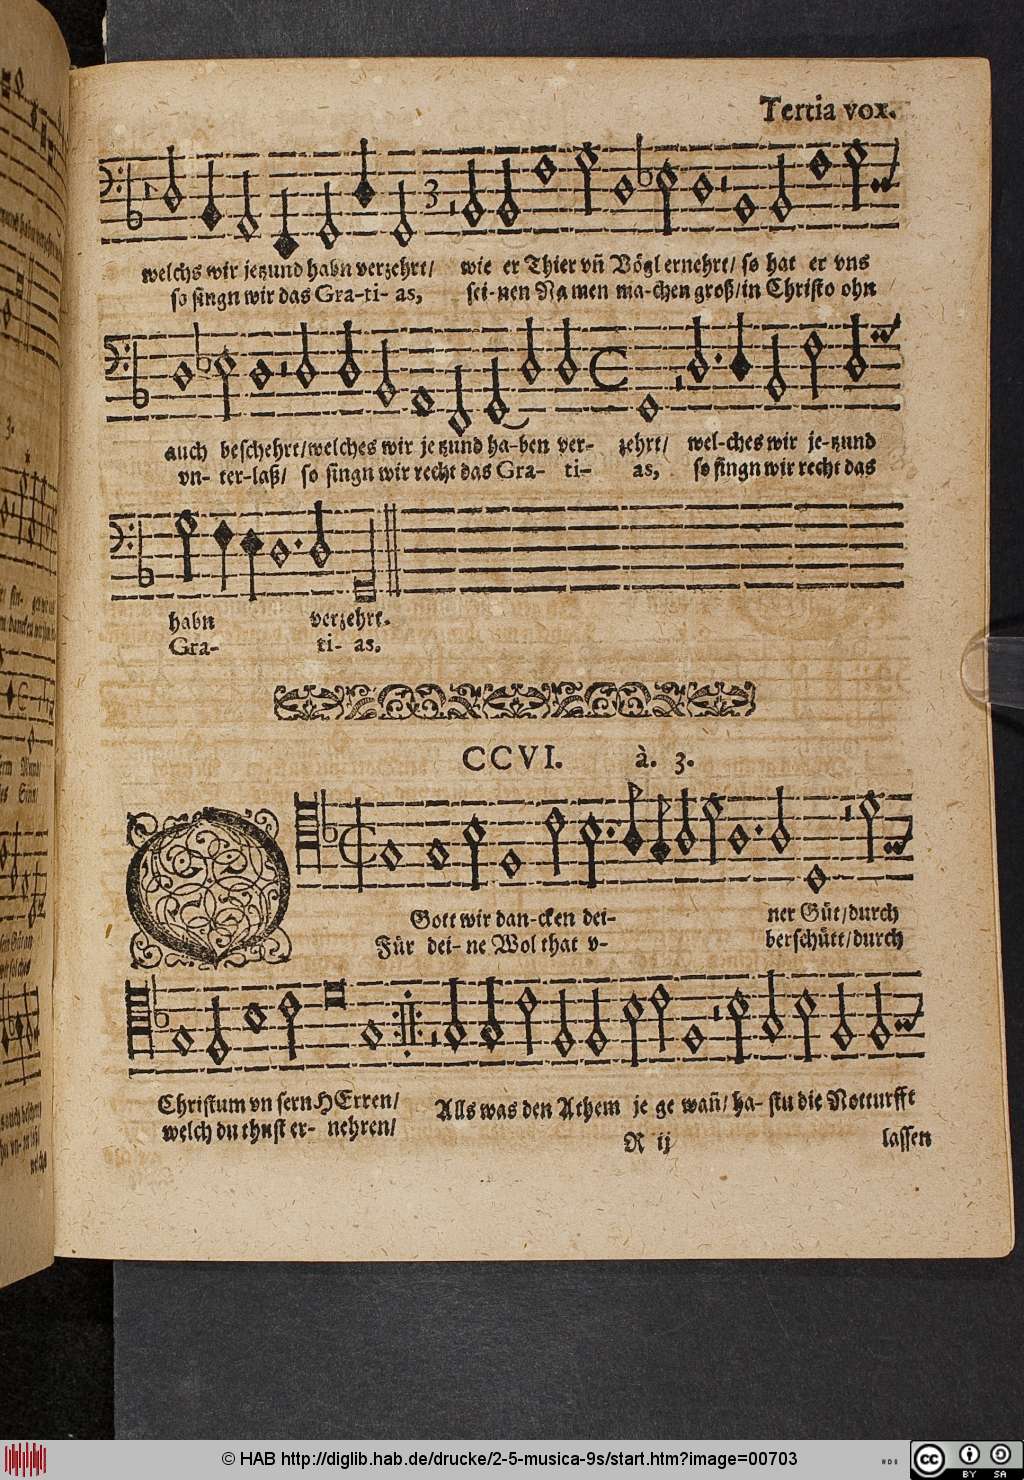 Tertia vox.
welchs wir jetzund habn verzehrt/ wie er Thier vñ Vögl ernehrt/ so hat er vns
so singn wir das Gra-ti- as, sei-nen Na men ma-chen groß/in Christo ohn
auch beschehrt/welches wir je tzund ha-ben ver- zehrt/ wel-ches wir je-tzund
vn- ter-laß/ so singn wir recht das Gra- ti- as, so singn wir recht das
habn verzehrt.
Gra- ti- as.
CCVI. à. 3.
O Gott wir dan-cken dei- ner Güt/durch
Für dei- ne Wol that v- berschütt/durch
Christum vn sern HErren/ Alls was den Athem je ge wañ/ ha- stu die Notturfft
welch du thust er- nehren/
R ij lassen
© HAB http://diglib.hab.de/drucke/2-5-musica-9s/start.htm?image=00703
cc BY SA